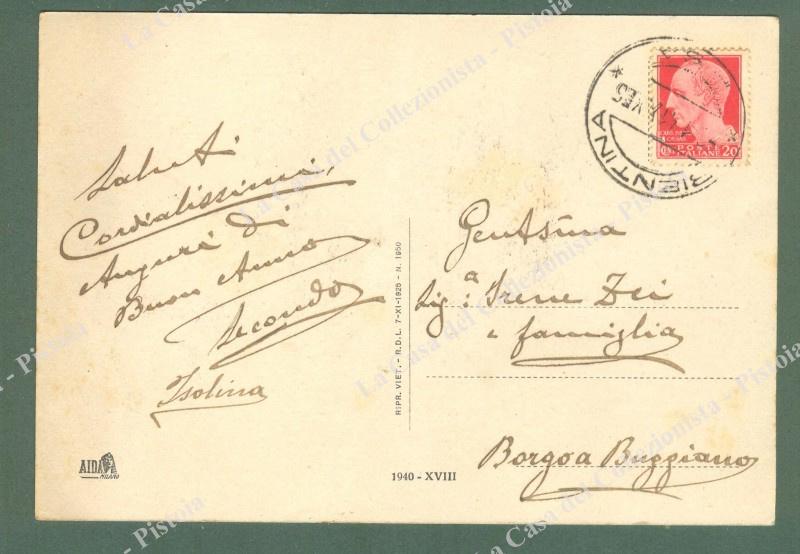 Saluti
Cordialissimi,
Auguri di
Buon Anno
Secondo
Isolina
AIDA
MILANO
RIPR. VIET. - R.D.L. 7-XI-1925 - N. 1950
1940 - XVIII
BIENTINA
POSTE
ITALIANE
20
Gentsima
Sig.a Irene Dei
e famiglia
Borgo a Buggiano
La Casa del Collezionista - Pistoia